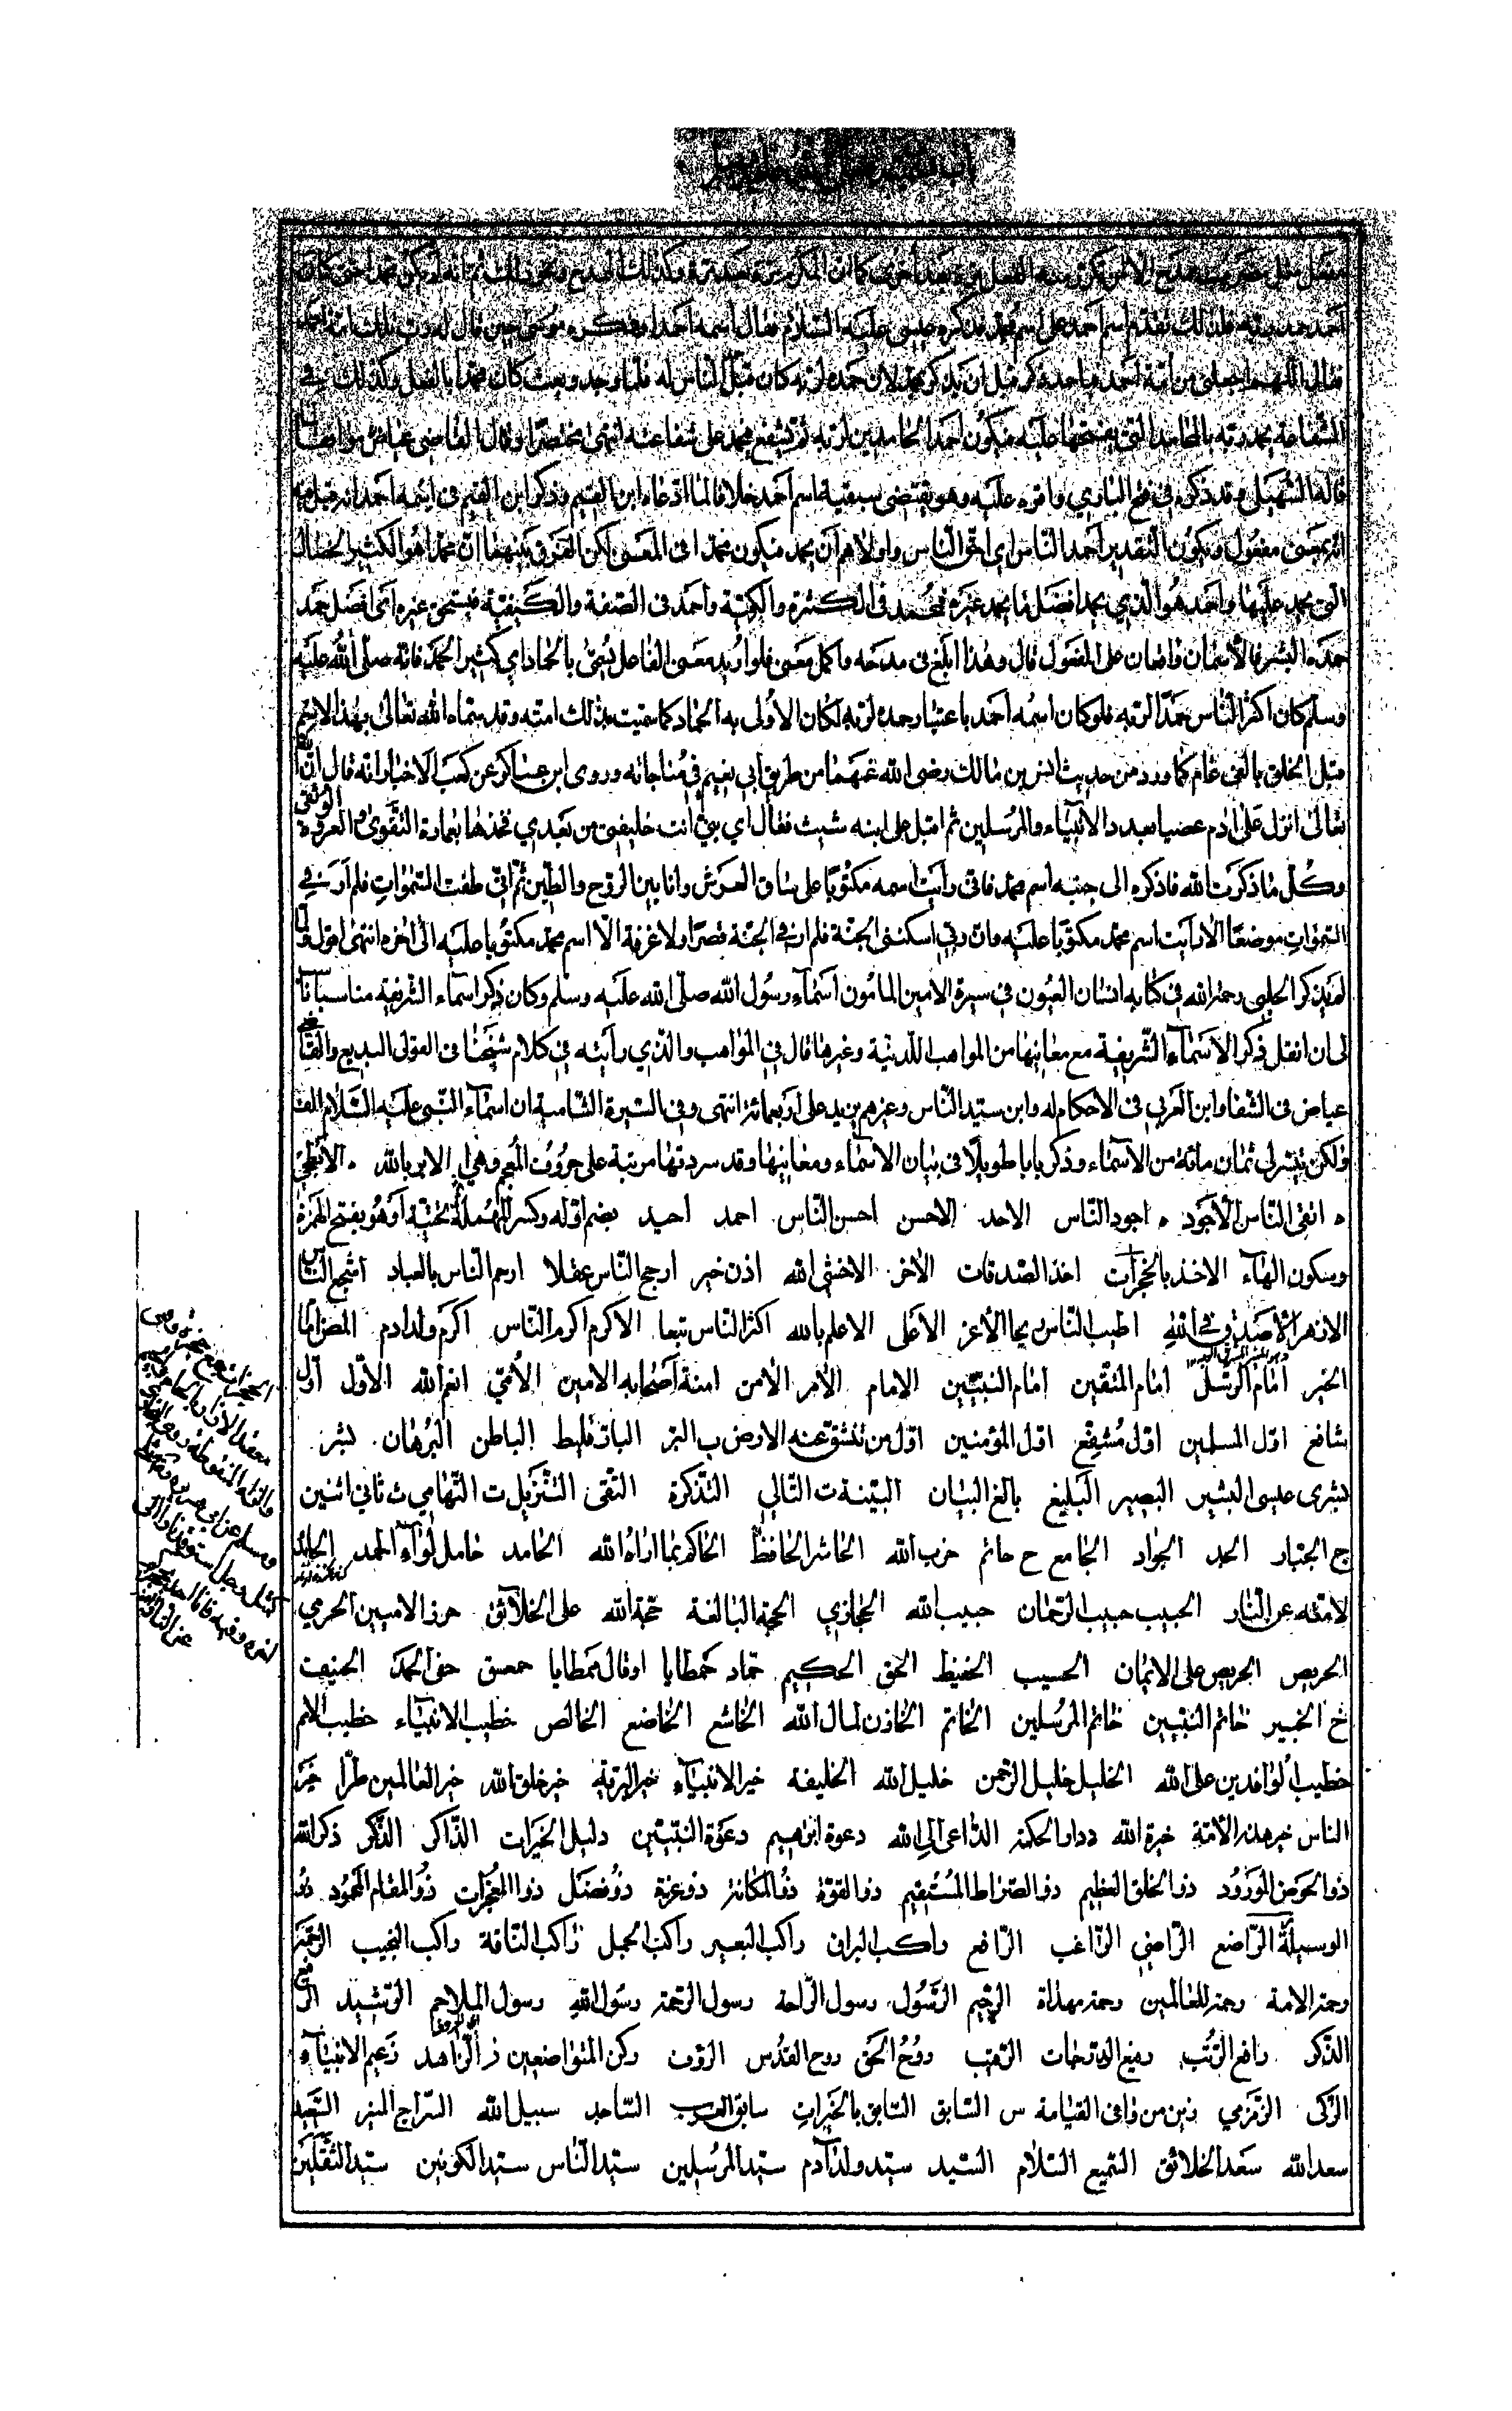 مفعل مثل مضرب وممدح الا لمن تكرر منه الفعل مرة بعد أخرى كما ان المكرم من وكذلك الممدح ونحو ذلك ثم انه لم يكن محمدا حتى كان
أحمد حمد ربه فلذلك تقدم اسم أحمد على اسم محمد فذكره عيسى عليه السلام فقال اسمه أحمد وذكره موسى حين قال له ربه تلك امة أحمد
فقال اللهم اجعلني من أمة أحمد فبأحمد ذكر قبل ان يذكر بمحمد لان حمده لربه كان قبل حمد الناس له فلما وجد وبعث كان محمدا بالفعل وكذلك في
الشفاعة يحمد ربه بالمحامد التي يفتحها عليه فيكون أحمد الحامدين لربه ثم يشفع فيحمد على شفاعته انتهى مختصرا وقال القاضي عياض موافقا لما
قاله السهيلي وقد ذكره في فتح الباري واقره عليه وهو يقتضي سبقية اسم أحمد خلافا لما ادعاه ابن القيم وذكر ابن القيم في اسمه أحمد انه قيل فيه
انه بمعنى مفعول ويكون التقدير أحمد الناس اي احق الناس واولاهم أن يحمد فيكون محمدا في المعنى لكن الفرق بينهما ان محمدا هو الكثير الخصال
التي يحمد عليها وأحمد هو الذي يحمد افضل مما يحمد غيره فمحمد في الكثرة والكمية وأحمد في الصفة والكيفية فيستحق غيره اي افضل حمد
حمده البشر فالاسمان واقعان على المفعول قال وهذا ابلغ في مدحه واكمل معنى فلو اريد معنى الفاعل لسمي بالحماد اي كثير الحمد فانه صلى الله عليه
وسلم كان اكثر الناس حمدا لربه فلو كان اسمه أحمد باعتبار حمده لربه لكان الأولى به الحماد كما سميت بذلك امته وقد سماه الله تعالى بهذا الاسم
قبل الخلق بالفي عام كما ورد من حديث انس بن مالك رضي الله عنهما من طريق ابي نعيم في مناجاته وروى ابن عساكر عن كعب الاخبار انه قال ان الله
تعالى انزل على ادم عصيا بعدد الانبياء والمرسلين ثم اقبل على ابنه شيث فقال اي بني انت خليفتي من بعدي فخذها بعمارة التقوى والعروة الوثقى
وكل ما ذكرت الله فاذكره الى جنبه اسم محمد فاني رأيت اسمه مكتوبا على ساق العرش وانا بين الروح والطين ثم اني طفت السموات فلم ار في
السموات موضعا الا رأيت اسم محمد مكتوبا عليه وان ربي اسكنني الجنة فلم ار في الجنة قصرا ولا غرفة الا اسم محمد مكتوبا عليه الى اخره انتهى اقول ولما
لم يذكر الحلبي رحمه الله في كتابه انسان العيون في سيرة الامين المأمون اسماء رسول الله صلى الله عليه وسلم وكان ذكر اسماء الشريفة مناسبا بان
لي ان انقل ذكر الاسماء الشريفة مع معانيها من المواهب اللدنية وغيرها قال في المواهب والذي رأيته في كلام شيخنا في القول البديع والقاضي
عياض في الشفا وابن العربي في الاحكام له وابن سيد الناس وغيرهم يزيد على اربعمائة انتهى وفي السيرة الشامية ان اسماء النبي عليه السلام الف
ولكن تيسر لي ثمان مائة من الاسماء وذكر بابا طويلا في بيان الاسماء ومعانيها وقد سردتها مرتبة على حروف المعجم وهي ا الابر بالله . الأبطحي
. اتقى الناس الأجود . اجود الناس الاحد الاحسن احسن الناس احمد احيد بضم اوله وكسر المهملة تحتية أو هو بفتح الهمزة
وسكون الهاء الاخذ بالحجرات اخذ الصدقات الأخر الاخشى لله اذن خير ارجح الناس عقلا ارحم الناس بالعباد أشجع الناس
الازهر الأصدق في الله اطيب الناس ريحا الأعز الأعلى الاعلم بالله اكثر الناس تبعا الاكرم اكرم الناس اكرم ولد ادم المص امام
الخير أمام الرسل امام المتقين إمام النبيين الإمام الأمر الأمن امنة أصحابه الامين الأمي انعم الله الاول أول
شافع اول المسلمين اول مشفع اول المؤمنين اول من تنشق عنه الارض ب البر البارقليط الباطن البرهان بشر
بشرى عيسى البشير البصير البليغ بالغ البيان البينة ت التالي التذكرة التقى التنزيل ت التهامي ث ثاني اثنين
ج الجبار الجد الجواد الجامع ح حاتم حزب الله الحاشر الحافظ الحاكم بما اراه الله الحامد حامل لواء الحمد الحائد
لامته عن النار الحبيب حبيب الرحمان حبيب الله الحجازي الحجة البالغة حجة الله على الخلائق حرز الاميين الحرمي
الحريص الحريص على الايمان الحسيب الحفيظ الحق الحكيم حماد حمطايا اوقال حمطايا حمعسق حفى الحمد الحنيف
خ الخبير خاتم النبيين خاتم المرسلين الخاتم الخازن لمال الله الخاشع الخاضع الخالص خطيب الانبياء خطيب الأمم
خطيب الوافدين على الله الخليل خليل الرحمن خليل الله الخليفة خير الانبياء خير البرية خير خلق الله خير العالمين طرا خير
الناس خير هذه الامة خيرة الله د دار الحكمة الداعي الى الله دعوة ابراهيم دعوة النبيين دليل الخيرات الذاكر الذكر ذكر الله
ذو الحوض المورود ذو الخلق العظيم ذو الصراط المستقيم ذو القوة ذو المكانة ذو عزة ذو فضل ذو المعجزات ذو المقام المحمود ذو
الوسيلة الراضع الراضي الراغب الرافع راكب البراق راكب البعير راكب الجمل راكب الناقة راكب النجيب الرحمة
رحمة الامة رحمة للعالمين رحمة مهداة الرحيم الرسول رسول الراحة رسول الرحمة رسول الله رسول الملاحم الرشيد الرفيع
الذكر رافع الرتب رفيع الدرجات الرقيب روح الحق روح القدس الرؤف ركن المتواضعين ز الزاهد زعيم الانبياء
الزكى الزمزمي زين من وافى القيامة س السابق السابق بالخيرات سابق العرب الساجد سبيل الله السراج المنير السعيد
سعد الله سعد الخلائق السميع السلام السيد سيد ولد آدم سيد المرسلين سيد الناس سيد الكونين سيد الثقلين